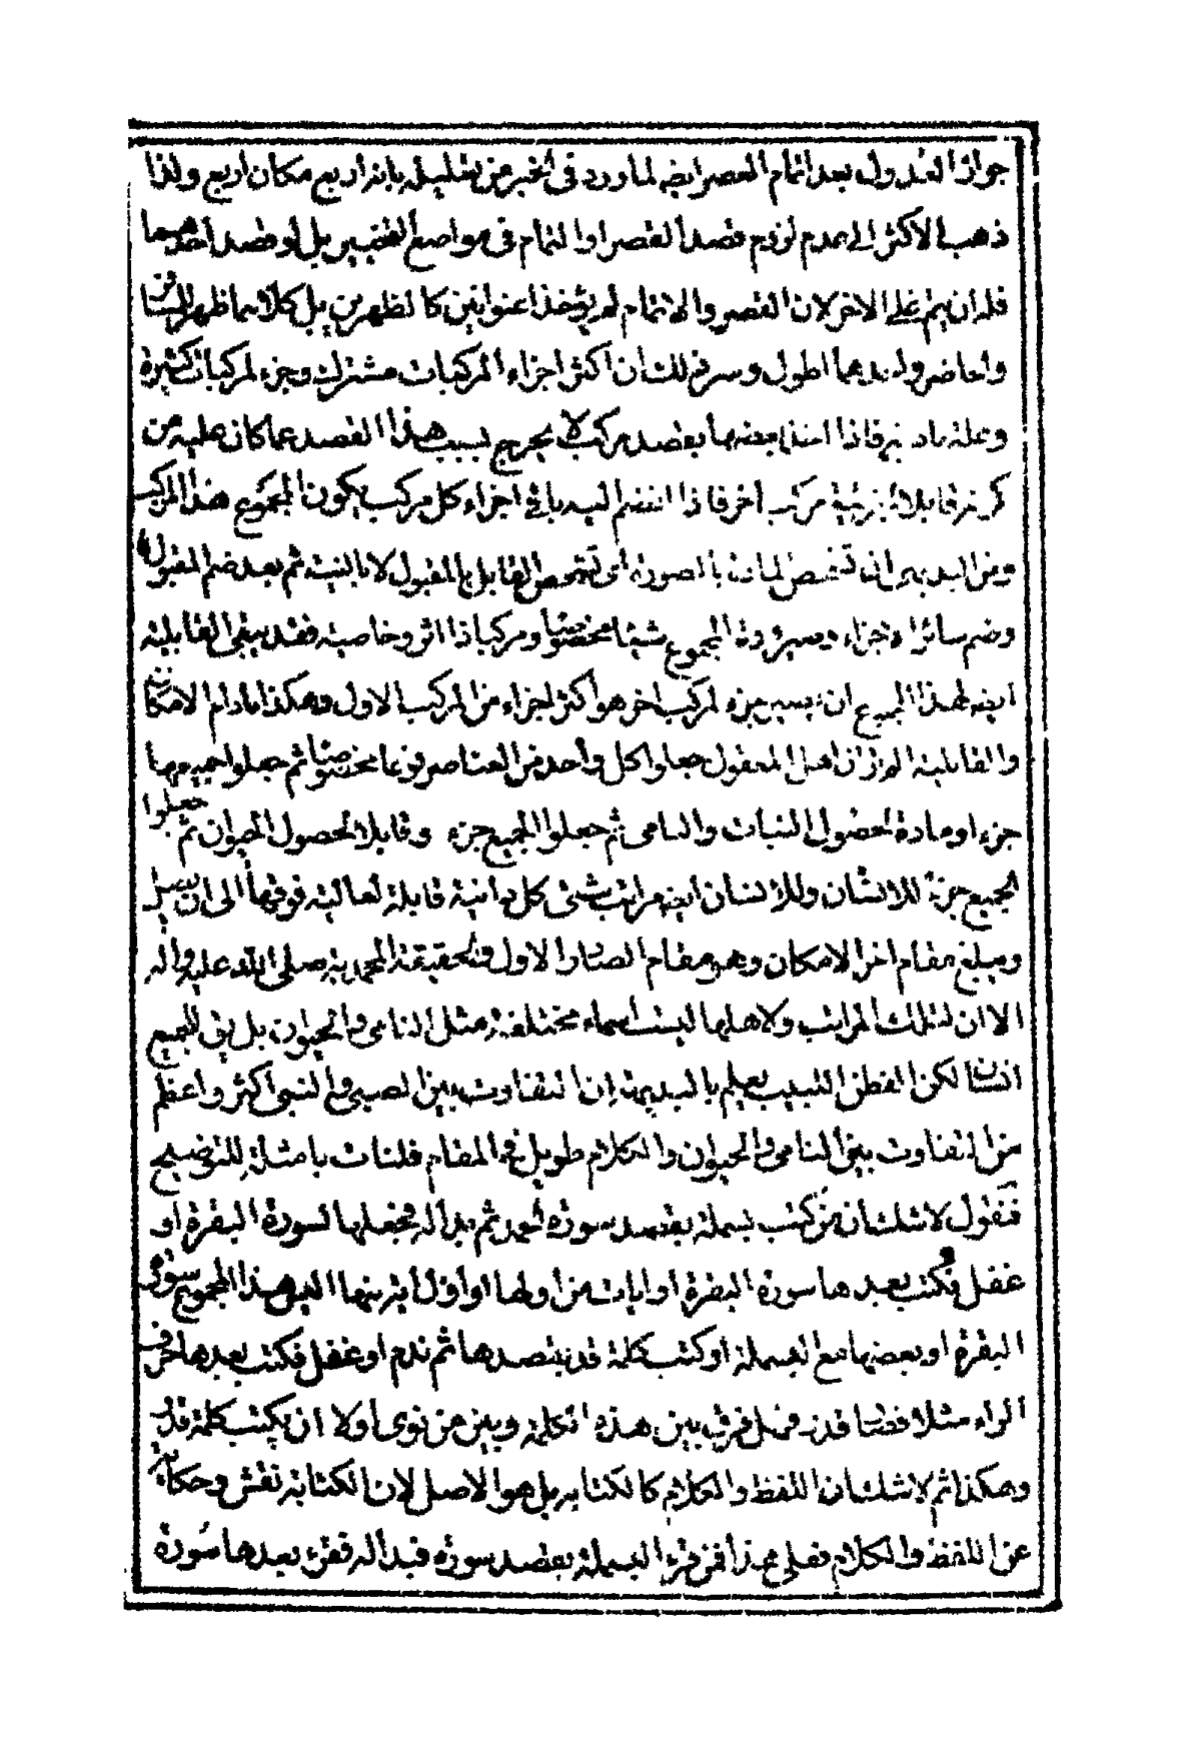 جواز العدول بعد اتمام العصر ايضه لما ورد فى الخبر من تعليله بانه اربع مكان اربع ولذا
ذهب الاكثر الى عدم لزوم قصد القصر او التمام فى مواضع التخيير بل لو قصد احدهما
فله ان يتم على الاخر لان القصر والاتمام لم يؤخذا عنوانين كالظهرين بل كلاهما ظهر للمسافر
والحاضر واحدهما اطول وسر ذلك ان اكثر اجزاء المركبات مشترك وجزء لمركبات كثيرة
وعلة مادية فاذا اخذ بعضها بقصد مركب لا يخرج بسبب هذا القصد عما كان عليه من
كونه قابلا لجزئية مركب اخر فاذا انضم اليه باقى اجزاء كل مركب يكون المجموع هذا المركب
ومن البديهى ان تشخص المادة بالصورة اى تشخص القابل بالمقبول لا بالنية ثم بعد ضم المقبول
وضم سائر الاجزاء وصيرورة المجموع شيئا مخصوصا ومركبا ذا اثر وخاصية فقد يبقى القابلية
ايضه لهذا الجميع ان يصير جزء لمركب اخر هو اكثر اجزاء من المركب الاول وهكذا مادام الامكان
والقابلية الم تر ان اهل المعقول جعلوا كل واحد من العناصر نوعا مخصوصا ثم جعلوا جميعها
جزء او مادة لحصول النبات والنامى ثم جعلوا الجميع جزء وقابلا لحصول الحيوان ثم جعلوا
الجميع جزء للانسان وللانسان ايضه مراتب شتى كل دانية قابلة لعالية فوقها الى ان يصل
ويبلغ مقام اخر الامكان وهو مقام الصادر الاول والحقيقة المحمدية صلى الله عليه واله
الا ان لتلك المراتب ولاهلها ليست اسماء مختلفة مثل النامى والحيوان بل يق للجميع
انسان لكن الفطن اللبيب يعلم بالبديهة ان التفاوت بين الصبى والنبى اكثر واعظم
من التفاوت بين النامى والحيوان والكلام طويل فى المقام فلنات بامثلة للتوضيح
فنقول لا شك ان من كتب بسملة بقصد سورة الحمد ثم بدا له فجعلها لسورة البقرة او
غفل فكتب بعدها سورة البقرة او ايات من اولها او اول اية منها اليس هذا المجموع سورة
البقرة او بعضها مع البسملة او كتب كلمة قد بقصدها ثم ندم او غفل فكتب بعدها حرف
الراء مثلا فصار قدر فهل فرق بين هذه الكلمة وبين من نوى اولا ان يكتب كلمة قدر
وهكذا ثم لا شك ان اللفظ والكلام كالكتابة بل هو الاصل لان الكتابة نقش وحكاية
عن اللفظ والكلام فعلى هذا فمن قرء البسملة بقصد سورة فبدا له فقرء بعدها سورة